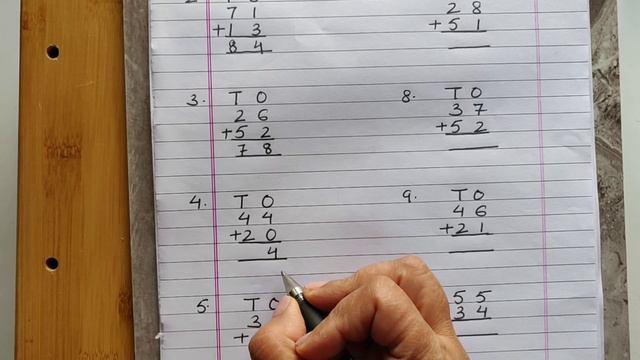 7 1
+1 3
8 4
2 8
+5 1
3. T O
2 6
+5 2
7 8
8. T O
3 7
+5 2
4. T O
4 4
+2 0
4
9. T O
4 6
+2 1
5. T O
3
+
5 5
3 4